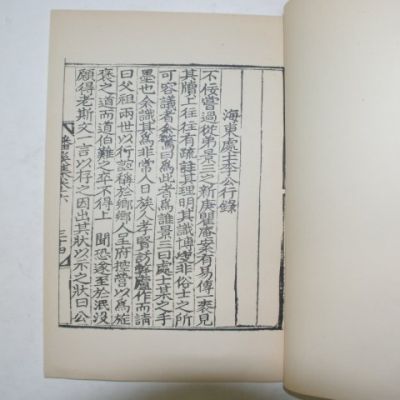 海東處士李公行錄
不佞嘗過從弟景三之新庚齋案有易傳一袠見
其牘上往往有疏註其理明其識博決非俗士之所
可容議者余驚曰爲此者爲誰景三曰處士某之手
墨也余識其爲非常人日族人孝賢訪弊廬作而請
曰父祖兩世以行誼稱於鄉鄉人呈府營以爲旌
褒之道而道伯難之卒不得上 聞恐遂至於泯没
願得老斯文一言以存之因出其狀以示之狀曰公
集卷六 三十四